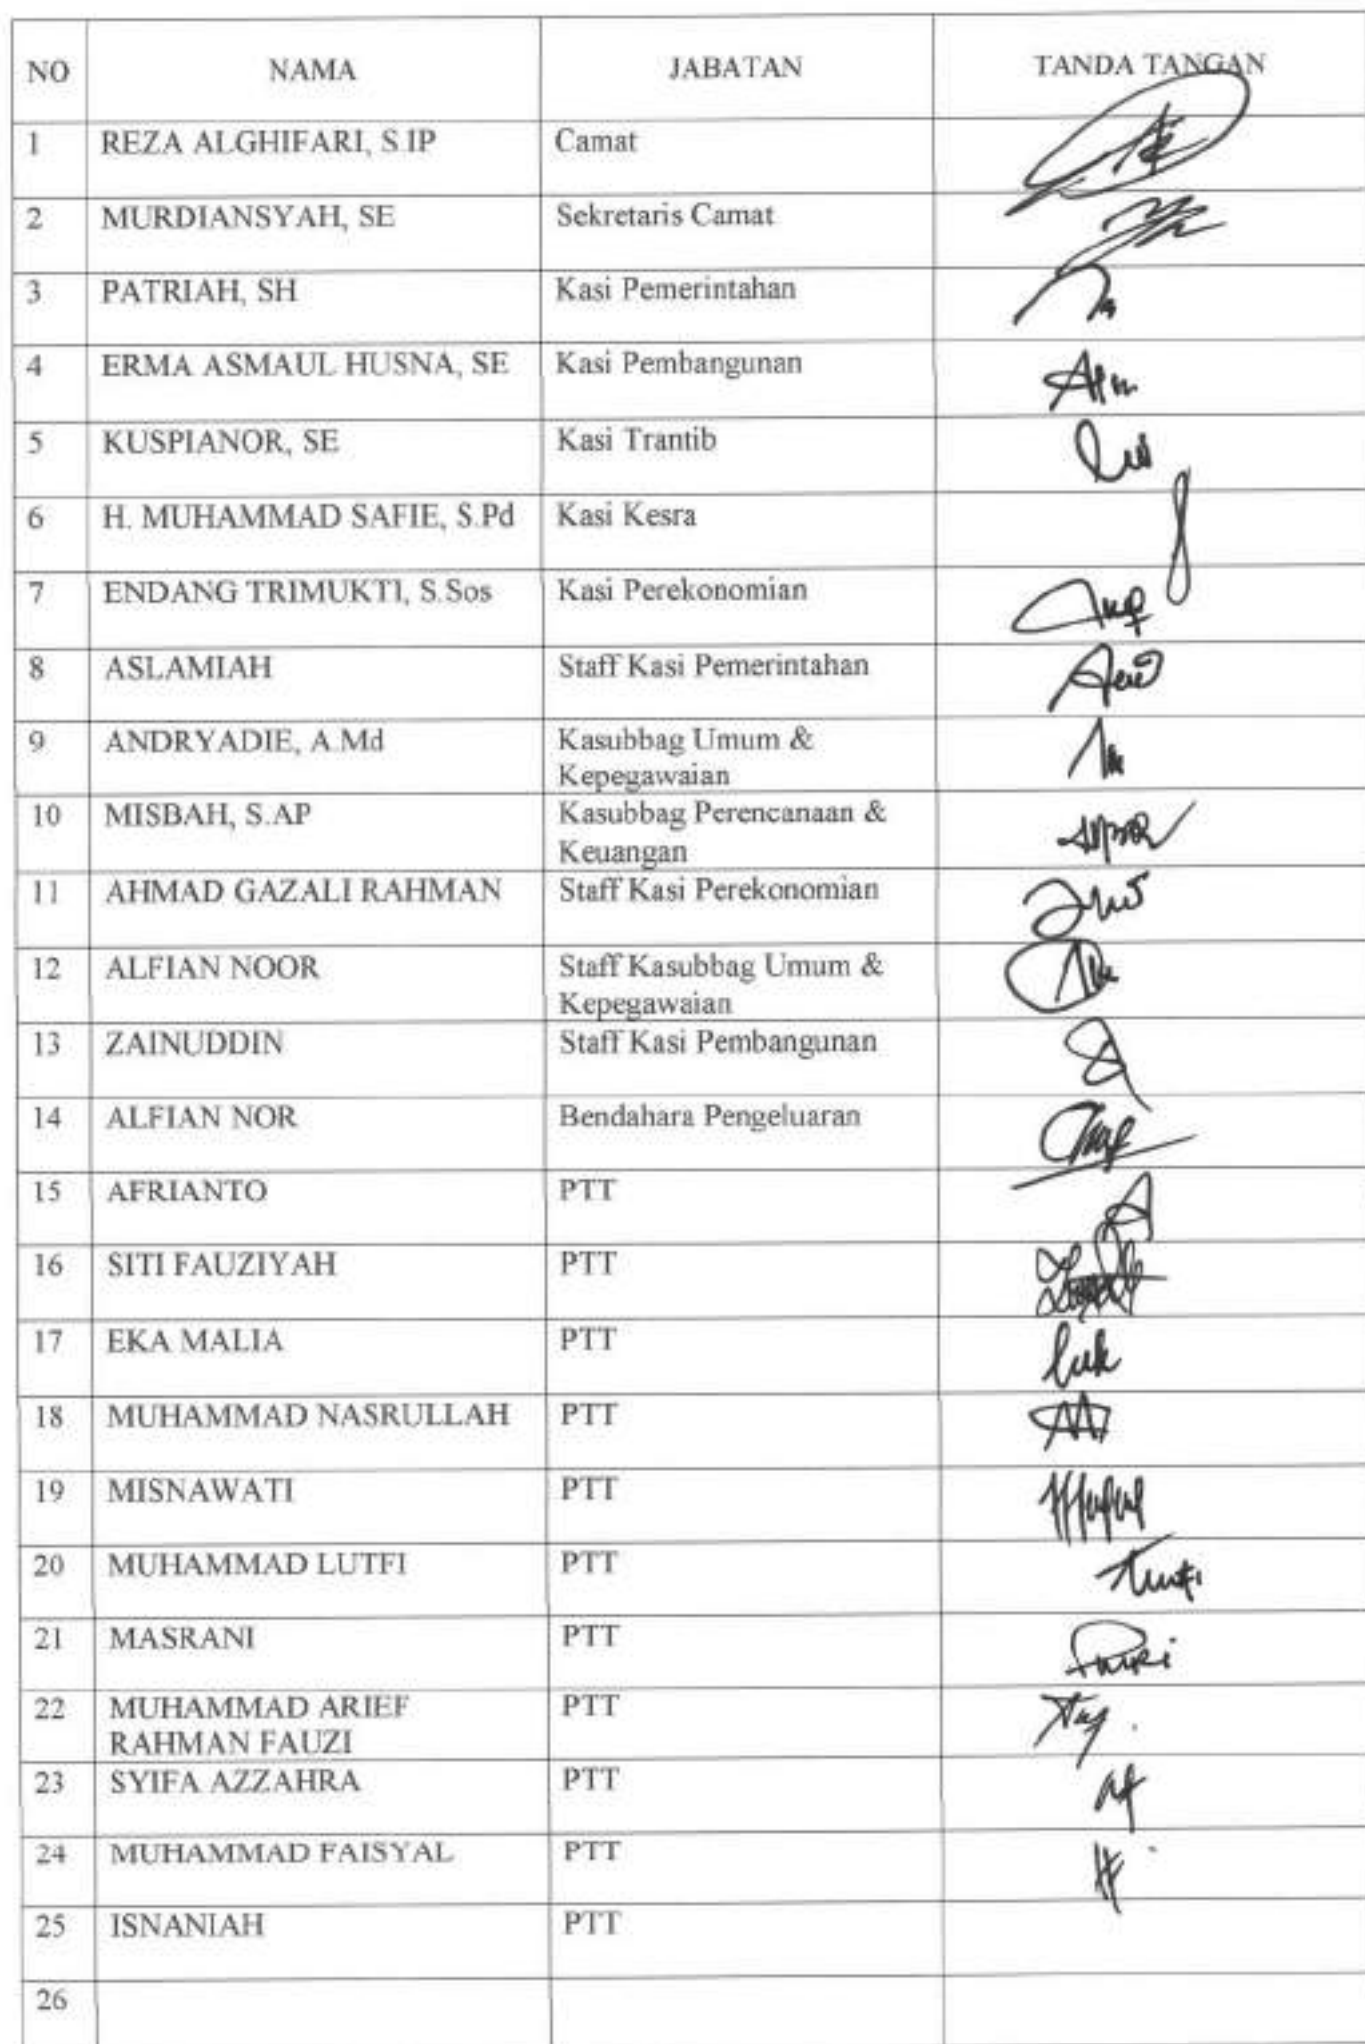 NO NAMA JABATAN TANDA TANGAN
1 REZA ALGHIFARI, S.IP Camat
2 MURDIANSYAH, SE Sekretaris Camat
3 PATRIAH, SH Kasi Pemerintahan
4 ERMA ASMAUL HUSNA, SE Kasi Pembangunan
5 KUSPIANOR, SE Kasi Trantib
6 H. MUHAMMAD SAFIE, S.Pd Kasi Kesra
7 ENDANG TRIMUKTI, S.Sos Kasi Perekonomian
8 ASLAMIAH Staff Kasi Pemerintahan
9 ANDRYADIE, A.Md Kasubbag Umum &
Kepegawaian
10 MISBAH, S.AP Kasubbag Perencanaan &
Keuangan
11 AHMAD GAZALI RAHMAN Staff Kasi Perekonomian
12 ALFIAN NOOR Staff Kasubbag Umum &
Kepegawaian
13 ZAINUDDIN Staff Kasi Pembangunan
14 ALFIAN NOR Bendahara Pengeluaran
15 AFRIANTO PTT
16 SITI FAUZIYAH PTT
17 EKA MALIA PTT
18 MUHAMMAD NASRULLAH PTT
19 MISNAWATI PTT
20 MUHAMMAD LUTFI PTT
21 MASRANI PTT
22 MUHAMMAD ARIEF PTT
RAHMAN FAUZI
23 SYIFA AZZAHRA PTT
24 MUHAMMAD FAISYAL PTT
25 ISNANIAH PTT
26